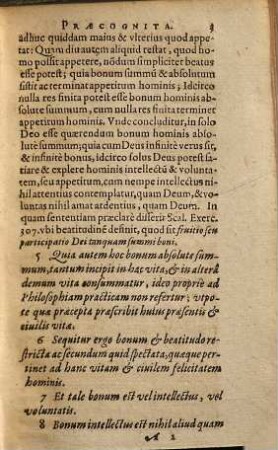 PRÆCOGNITA. 3
adhuc quiddam maius & vlterius quod appe-
tat: Quam diu autem aliquid restat, quod ho
mo possit appetere, nõdum simpliciter beatus
esse potest; quia bonum summũ & absolutum
sistit ac terminat appetitum hominis; Idcirco
nulla res finita potest esse bonum hominis ab-
solute summum, cum nulla res finita terminet
appetitum hominis. Vnde concluditur, in solo
Deo esse quærendum bonum hominis abso-
lutè summum; quia cum Deus infinitè verus sit,
& infinitè bonus, idcirco solus Deus potest sa-
tiare & explere hominis intellectũ & volunta-
tem, seu appetitum, cum nempe intellectus ni-
hil attentius contempletur, quam Deum, & vo-
luntas nihil amat ardentius, quam Deum. In
quam sententiam præclarè disserit Scal. Exerc.
307. vbi beatitudinẽ definit, quod sit fruitio seu
participatio Dei tanquam summi boni.
5 Quia autem hoc bonum absolute sum-
mum, tantum incipit in hac vita, & in alterâ
demum vita consummatur, ideo propriè ad
Philosophiam practicam non refertur; vtpo-
te quæ præcepta præscribit huius præsentis &
ciuilis vitæ.
6 Sequitur ergo bonum & beatitudo re-
stricta ac secundum quid spectata, quæ per-
tinet ad hanc vitam & ciuilem felicitatem
hominis.
7 Et tale bonum est vel intellectus, vel
voluntatis.
8 Bonum intellectus est nihil aliud quam
A 2